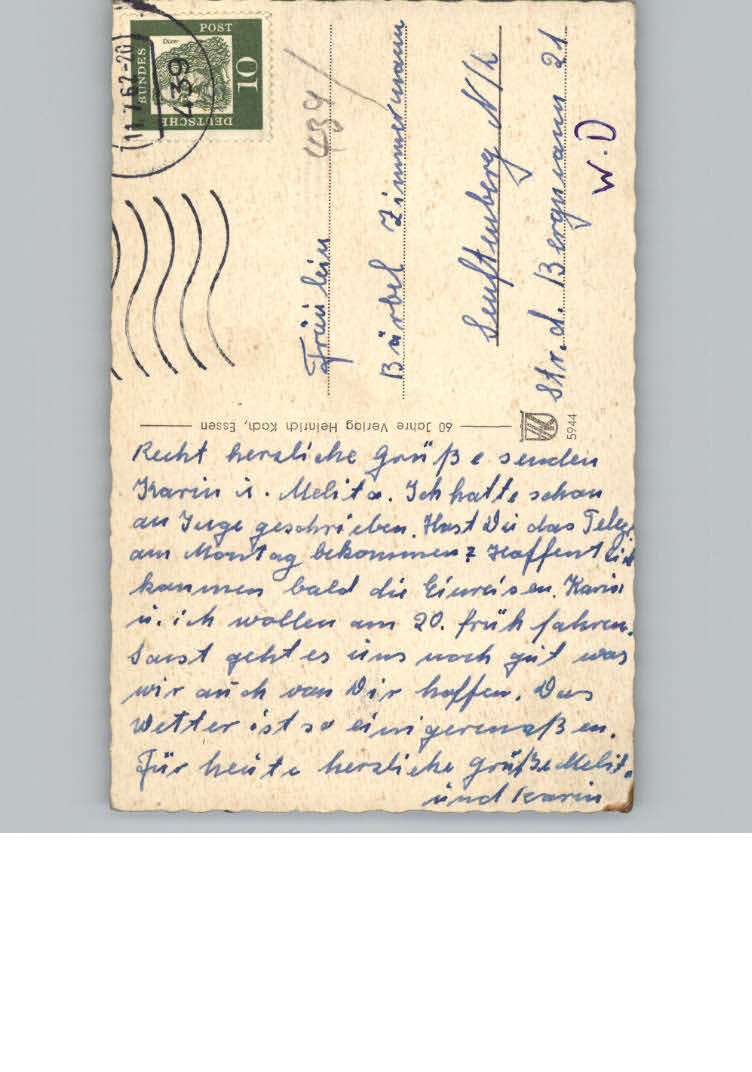 DEUTSCHE
BUNDES
POST
Dürer
10
11.7.62-20
439
434
Fräulein
Bärbel Zimmermann
Senftenberg N/L
Str. d. Bergmann 21
W. D
60 Jahre Verlag Heinrich Koch, Essen
5944
Recht herzliche Grüße senden
Karin u. Melita. Ich hatte schon
an Inge geschrieben. Hast Du das Telegr
am Montag bekommen? Hoffentlich
kommen bald die Einreisen. Karin
u. ich wollen am 20. früh fahren.
Sonst geht es uns noch gut was
wir auch von Dir hoffen. Das
Wetter ist so einigermaßen.
Für heute herzliche Grüße Melita
und Karin